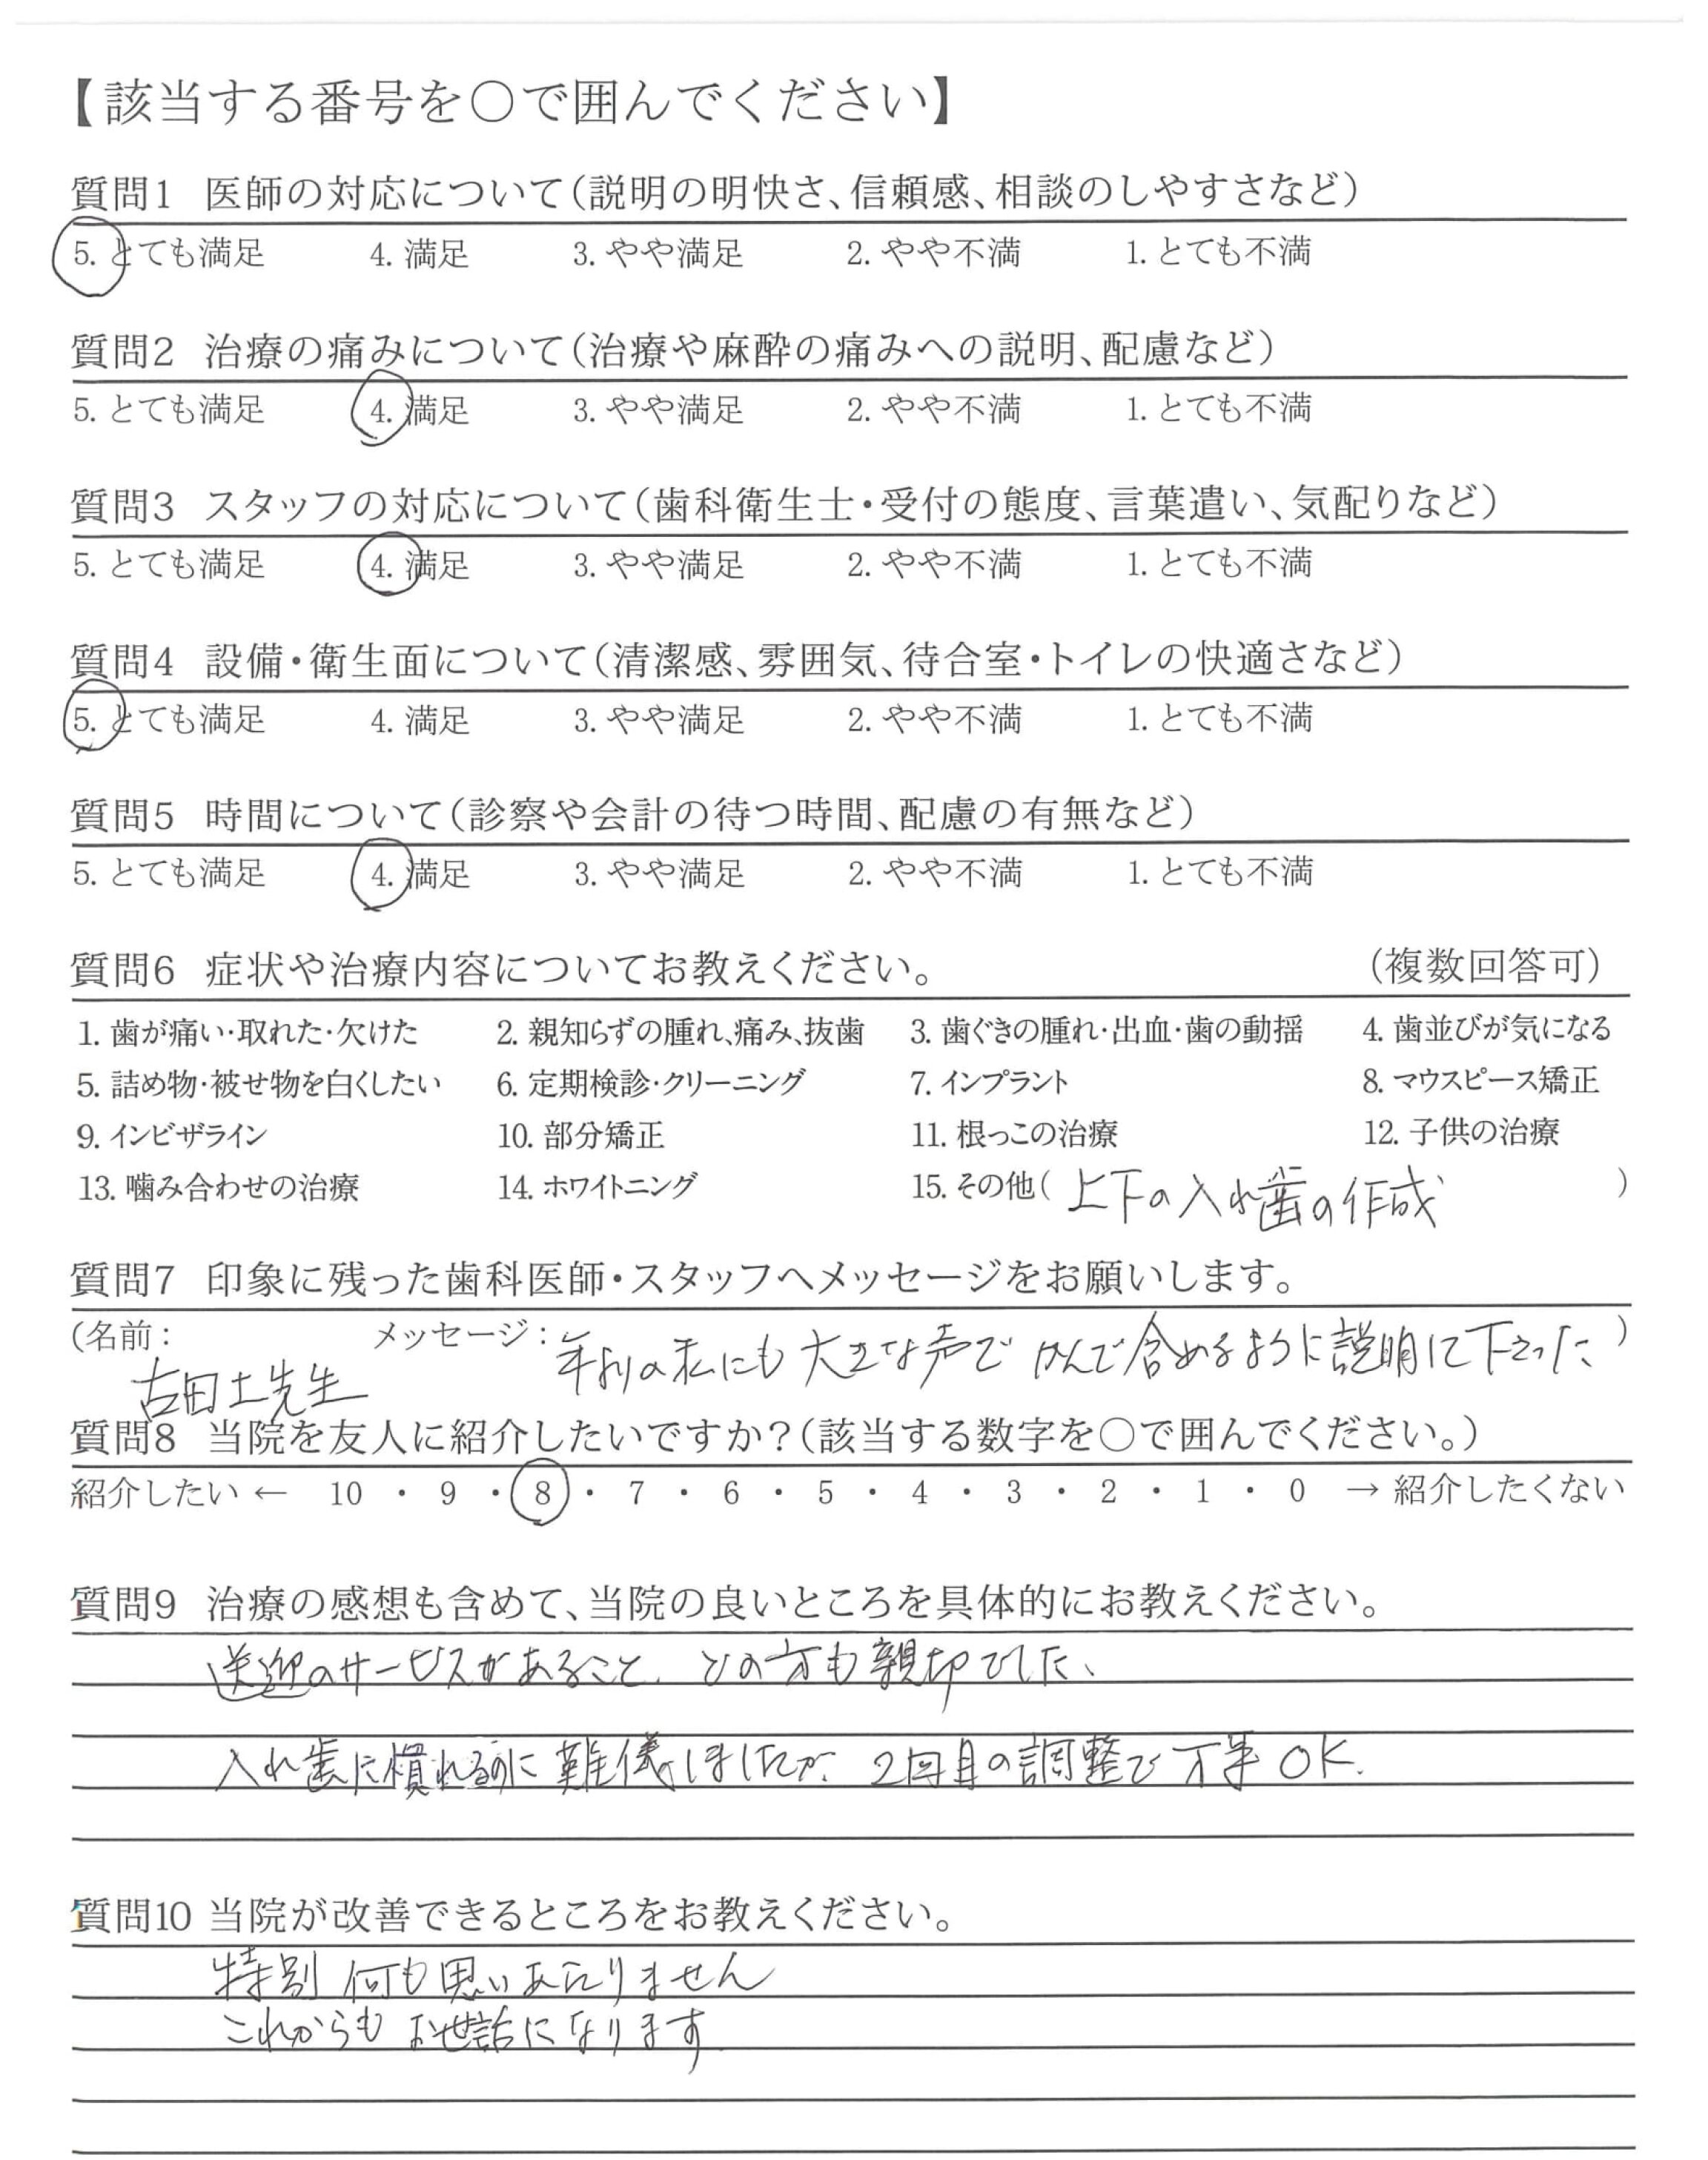 【該当する番号を○で囲んでください】
質問1 医師の対応について(説明の明快さ、信頼感、相談のしやすさなど)
5. とても満足 4. 満足 3. やや満足 2. やや不満 1. とても不満
質問2 治療の痛みについて(治療や麻酔の痛みへの説明、配慮など)
5. とても満足 4. 満足 3. やや満足 2. やや不満 1. とても不満
質問3 スタッフの対応について(歯科衛生士・受付の態度、言葉遣い、気配りなど)
5. とても満足 4. 満足 3. やや満足 2. やや不満 1. とても不満
質問4 設備・衛生面について(清潔感、雰囲気、待合室・トイレの快適さなど)
5. とても満足 4. 満足 3. やや満足 2. やや不満 1. とても不満
質問5 時間について(診察や会計の待つ時間、配慮の有無など)
5. とても満足 4. 満足 3. やや満足 2. やや不満 1. とても不満
質問6 症状や治療内容についてお教えください。 (複数回答可)
1. 歯が痛い・取れた・欠けた 2. 親知らずの腫れ、痛み、抜歯 3. 歯ぐきの腫れ・出血・歯の動揺 4. 歯並びが気になる
5. 詰め物・被せ物を白くしたい 6. 定期検診・クリーニング 7. インプラント 8. マウスピース矯正
9. インビザライン 10. 部分矯正 11. 根っこの治療 12. 子供の治療
13. 噛み合わせの治療 14. ホワイトニング 15. その他( 上下の入れ歯の作成 )
質問7 印象に残った歯科医師・スタッフへメッセージをお願いします。
(名前: 古田土先生 メッセージ: 年よりの私にも大きな声でかんで含めるように説明して下さった )
質問8 当院を友人に紹介したいですか?(該当する数字を○で囲んでください。)
紹介したい ← 10 ・ 9 ・ 8 ・ 7 ・ 6 ・ 5 ・ 4 ・ 3 ・ 2 ・ 1 ・ 0 → 紹介したくない
質問9 治療の感想も含めて、当院の良いところを具体的にお教えください。
送迎のサービスがあること、どの方も親切でした、
入れ歯に慣れるのに難儀しましたが、2回目の調整で万事OK.
質問10 当院が改善できるところをお教えください。
特別何も思いあたりません
これからもお世話になります